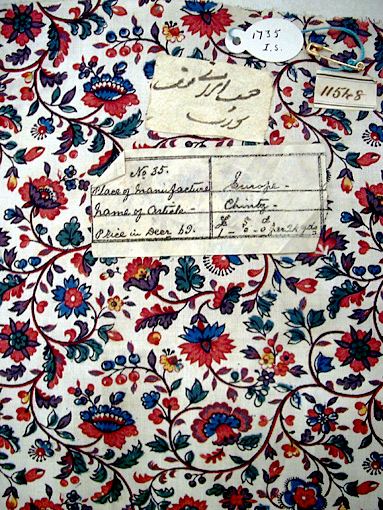 1735
I.S.
11548
No 35.
Place of Manufacture Europe -
Name of Article Chintz -
£ s d
Price in Decr 69. 1 - 0 - 0 per 24 yds